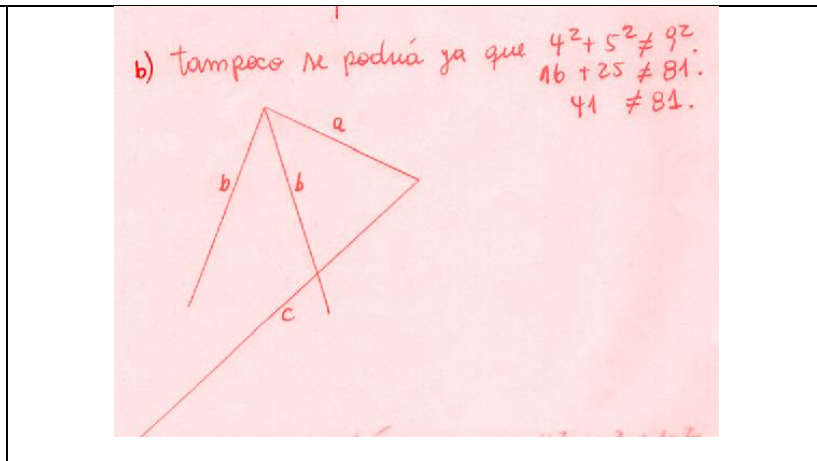 b) tampoco se podriá ya que 4² + 5² ≠ 9².
16 + 25 ≠ 81.
41 ≠ 81.
a
b
b
c